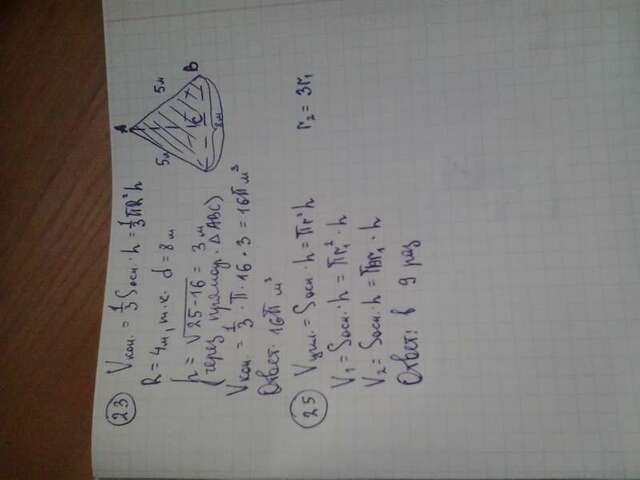 23 Vкон. = 1/3 Sосн. · h = 1/3 πR²h
R = 4м, т.к. d = 8м
h = √25-16 = 3 м
(через прямоуг. ΔABC)
Vкон. = 1/3 · π · 16 · 3 = 16π м³
Ответ: 16π м³
A
5м 5м
C B
8м
25 Vцил. = Sосн. · h = πr²h r₂ = 3r₁
V₁ = Sосн. · h = πr₁² · h
V₂ = Sосн. · h = r₁ · h
Ответ: в 9 раз